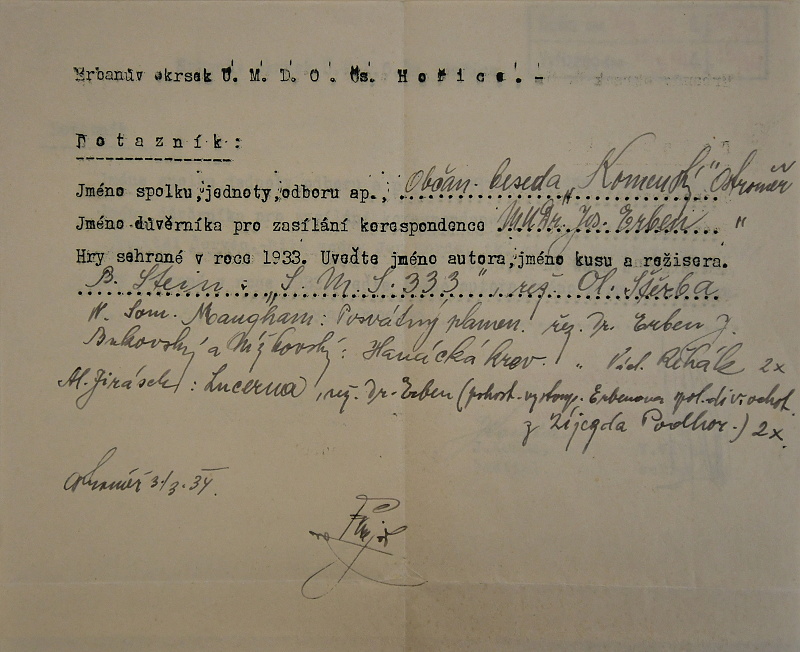 Erbanův okrsek Ú. M. D. O. Čs. Hořice. -
Dotazník:
Jméno spolku, jednoty, odboru ap., Občan. beseda „Komenský" Ostroměř
Jméno důvěrníka pro zasílání korespondence MUDr. Jos. Erben "
Hry sehrané v roce 1933. Uveďte jméno autora, jméno kusu a režisera.
B. Stein: „S. M. S. 333", rež. Ol. Ščerba
W. Som. Maugham: Posvátný plamen. rež. Dr. Erben J.
Bukovský a Mýškovský: Hanácká krev. „ Vid. Řehák 2x
Al. Jirásek: Lucerna, rež. Dr. Erben (pohost. vystoup. Erbenova spol. div. ochot.
z Podhor.) 2x.
Ostroměř 3/3. 34.